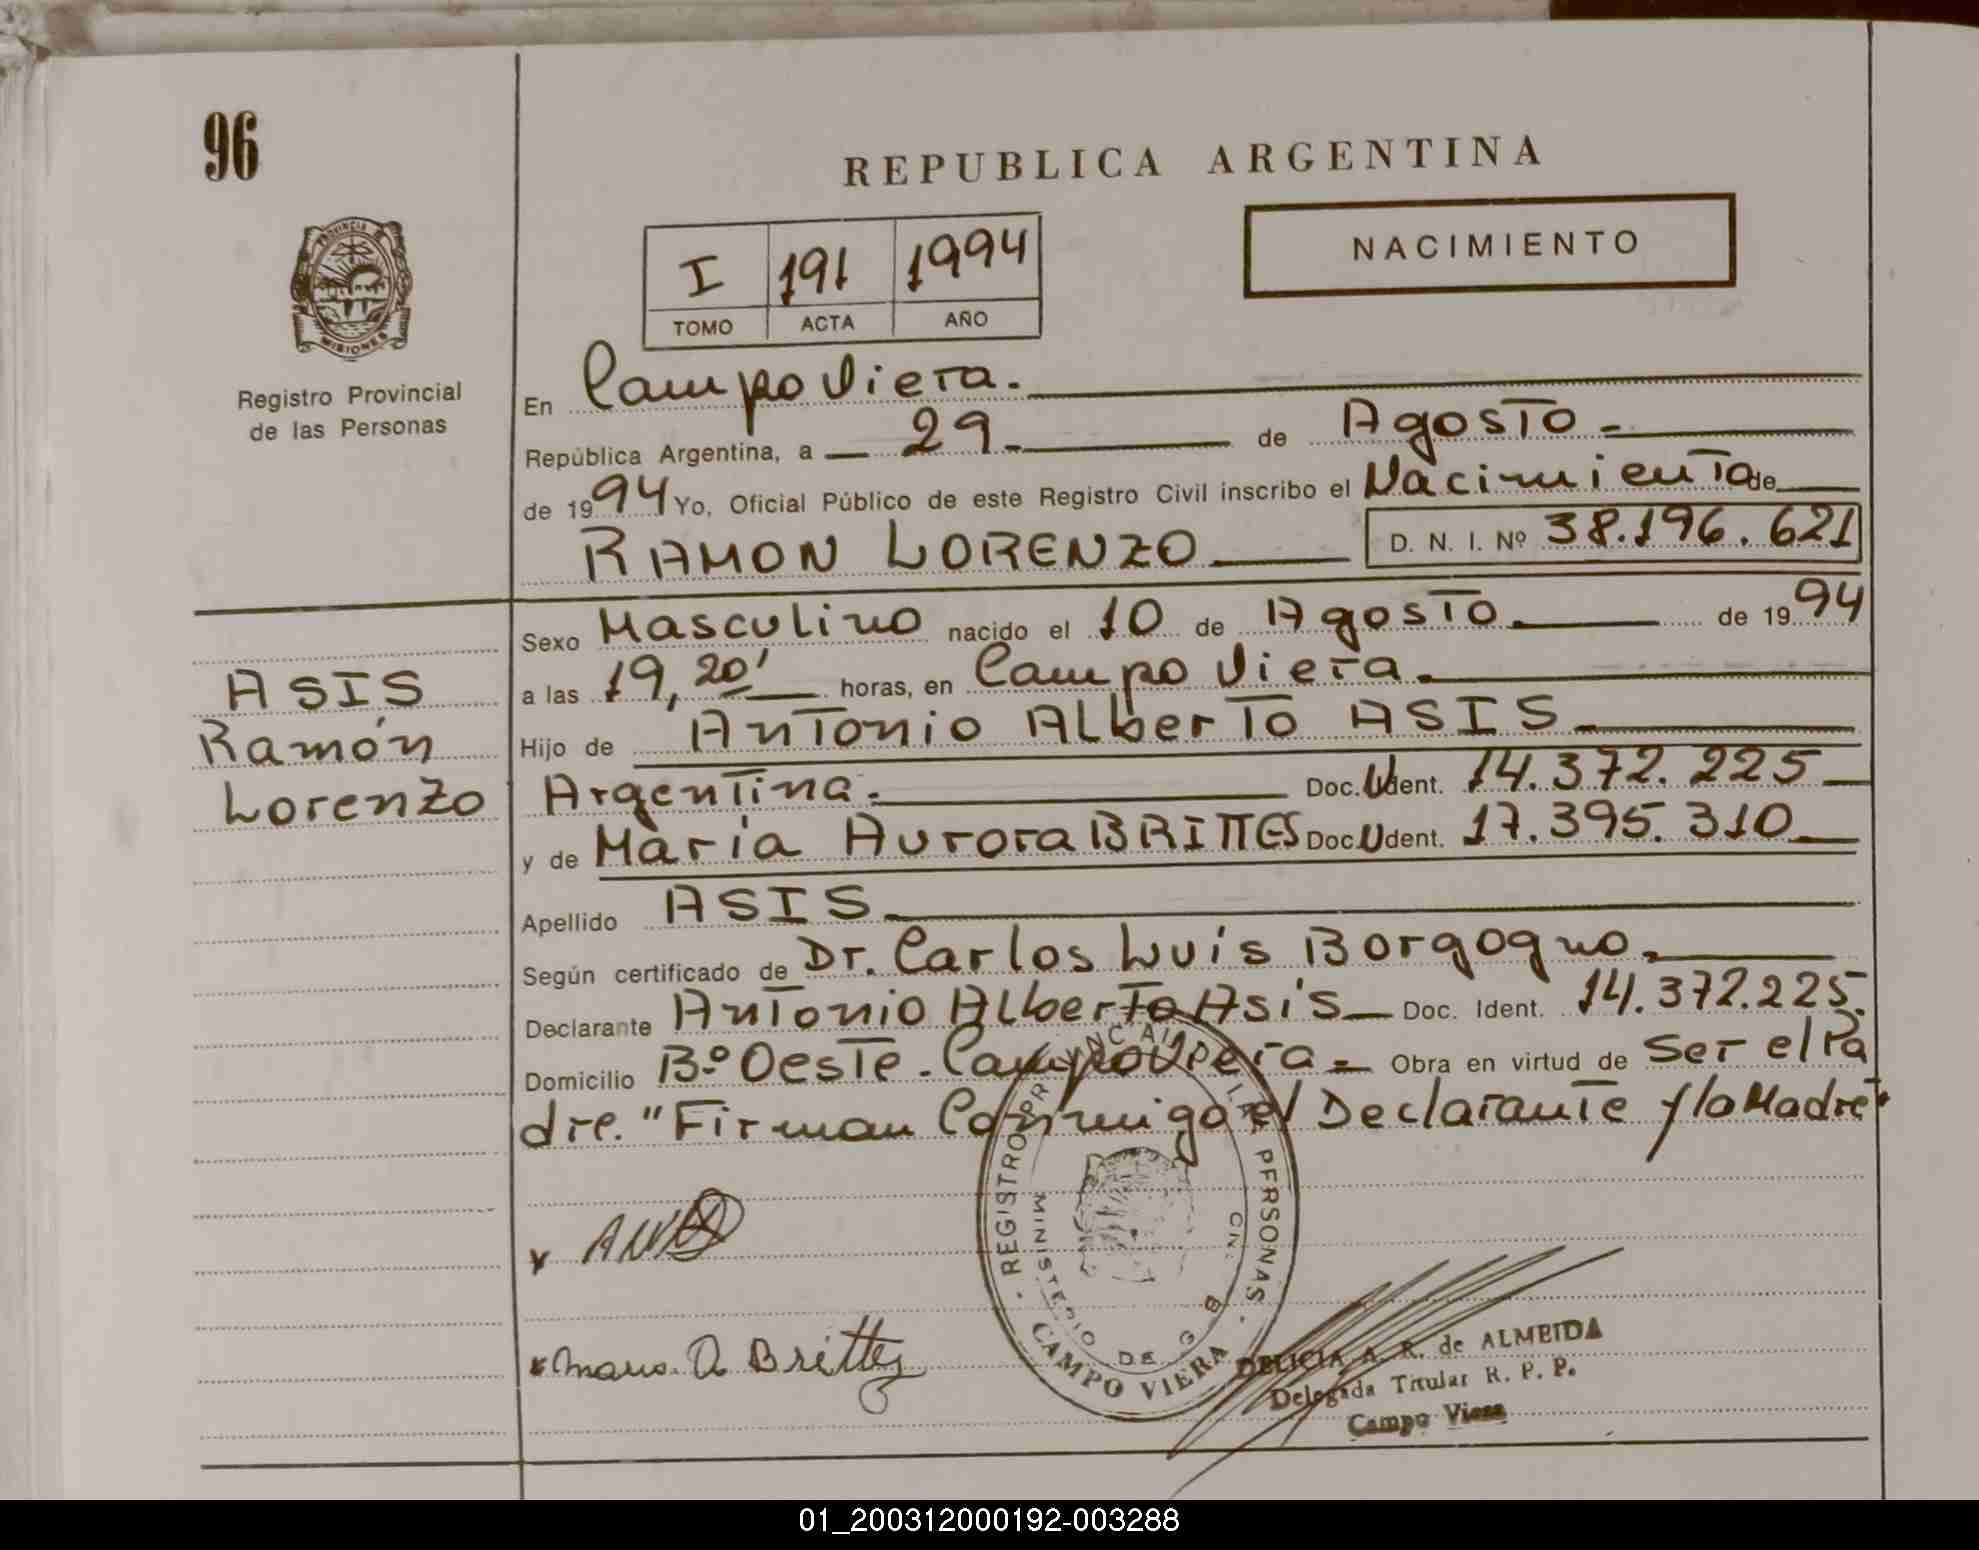 96
REPUBLICA ARGENTINA
NACIMIENTO
I 191 1994
TOMO ACTA AÑO
PROVINCIA DE
MISIONES
Registro Provincial
de las Personas
En Campo Viera.
República Argentina, a 29 de Agosto
de 1994 Yo, Oficial Público de este Registro Civil inscribo el Nacimiento de
RAMON LORENZO D. N. I. Nº 38.196.621
Sexo Masculino nacido el 10 de Agosto de 1994
a las 19,20' horas, en Campo Viera.
Hijo de Antonio Alberto ASIS
Argentina. Doc. Ident. 14.372.225
y de María Aurora BRITTES Doc. Ident. 17.395.310
Apellido ASIS
Según certificado de Dr. Carlos Luis Borgogno.
Declarante Antonio Alberto Asís Doc. Ident. 14.372.225.
Domicilio Bº Oeste - Campo Viera = Obra en virtud de Ser el Pa
dre. "Firman Conmigo el Declarante y la Madre"
ASIS
Ramón
Lorenzo
REGISTRO PROVINCIAL PERSONAS
MINISTERIO DE
CAMPO VIERA
Maria A Brittes
DELICIA A. R. de ALMEIDA
Delegada Titular R. P. P.
Campo Viera
01_200312000192-003288